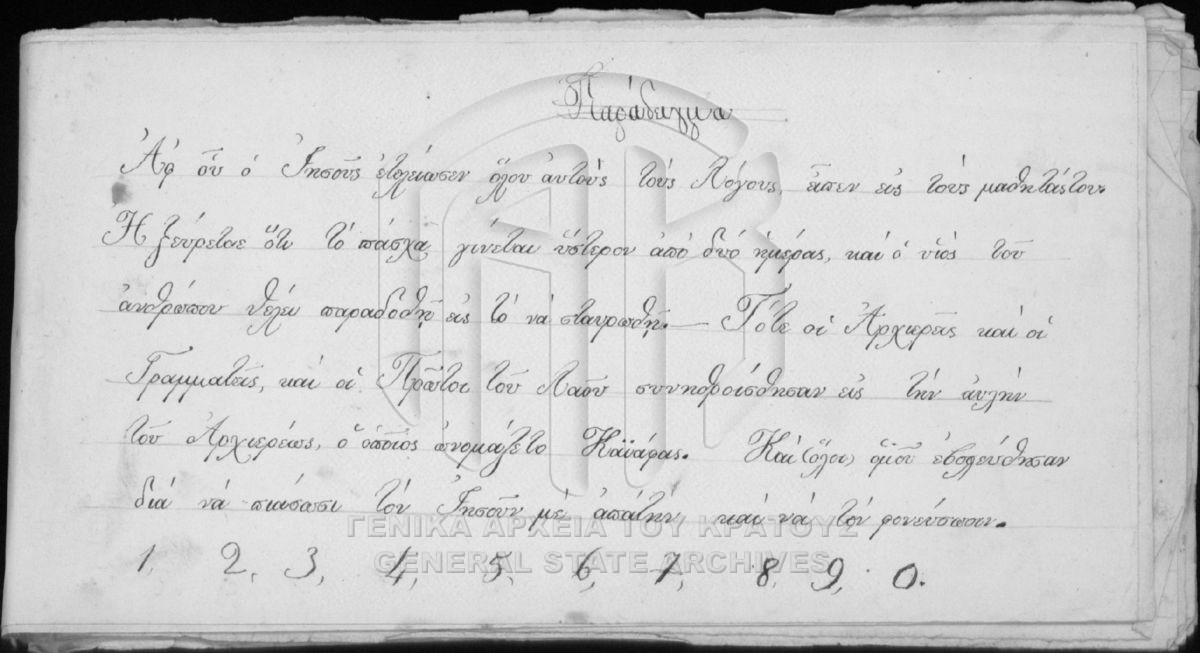 Παράδειγμα
Ἀφ οὗ ὁ Ἰησοῦς ἐτελείωσεν ὅλου ἀυτοὺς τοὺς Λόγους, εἶπεν εἰς τοὺς μαθητάς του.
Ἠξεύρετε ὅτι τὸ πάσχα γίνεται ὕστερον ἀπὸ δυὸ ἡμέρας, καὶ ὁ υἱὸς τοῦ
ἀνθρώπου θέλει παραδοθῇ εἰς τὸ νὰ σταυρωθῇ. — Τότε οἱ Ἀρχιερεῖς καὶ οἱ
Γραμματεῖς, καὶ οἱ Πρῶτοι τοῦ Λαοῦ συνηθροίσθησαν εἰς τὴν ἀυλὴν
τοῦ Ἀρχιερέως, ὁ ὁποῖος ὠνομάζετο Καϊάφας. Καὶ (ὅλοι) ὁμοῦ ἐβολεύθησαν
διὰ νὰ πιάσωσι τὸν Ἰησοῦν μὲ ἀπάτην, καὶ νὰ τὸν φονεύσωσιν.
1, 2, 3, 4, 5, 6, 7, 8, 9, 0.
ΓΕΝΙΚΑ ΑΡΧΕΙΑ ΤΟΥ ΚΡΑΤΟΥΣ
GENERAL STATE ARCHIVES